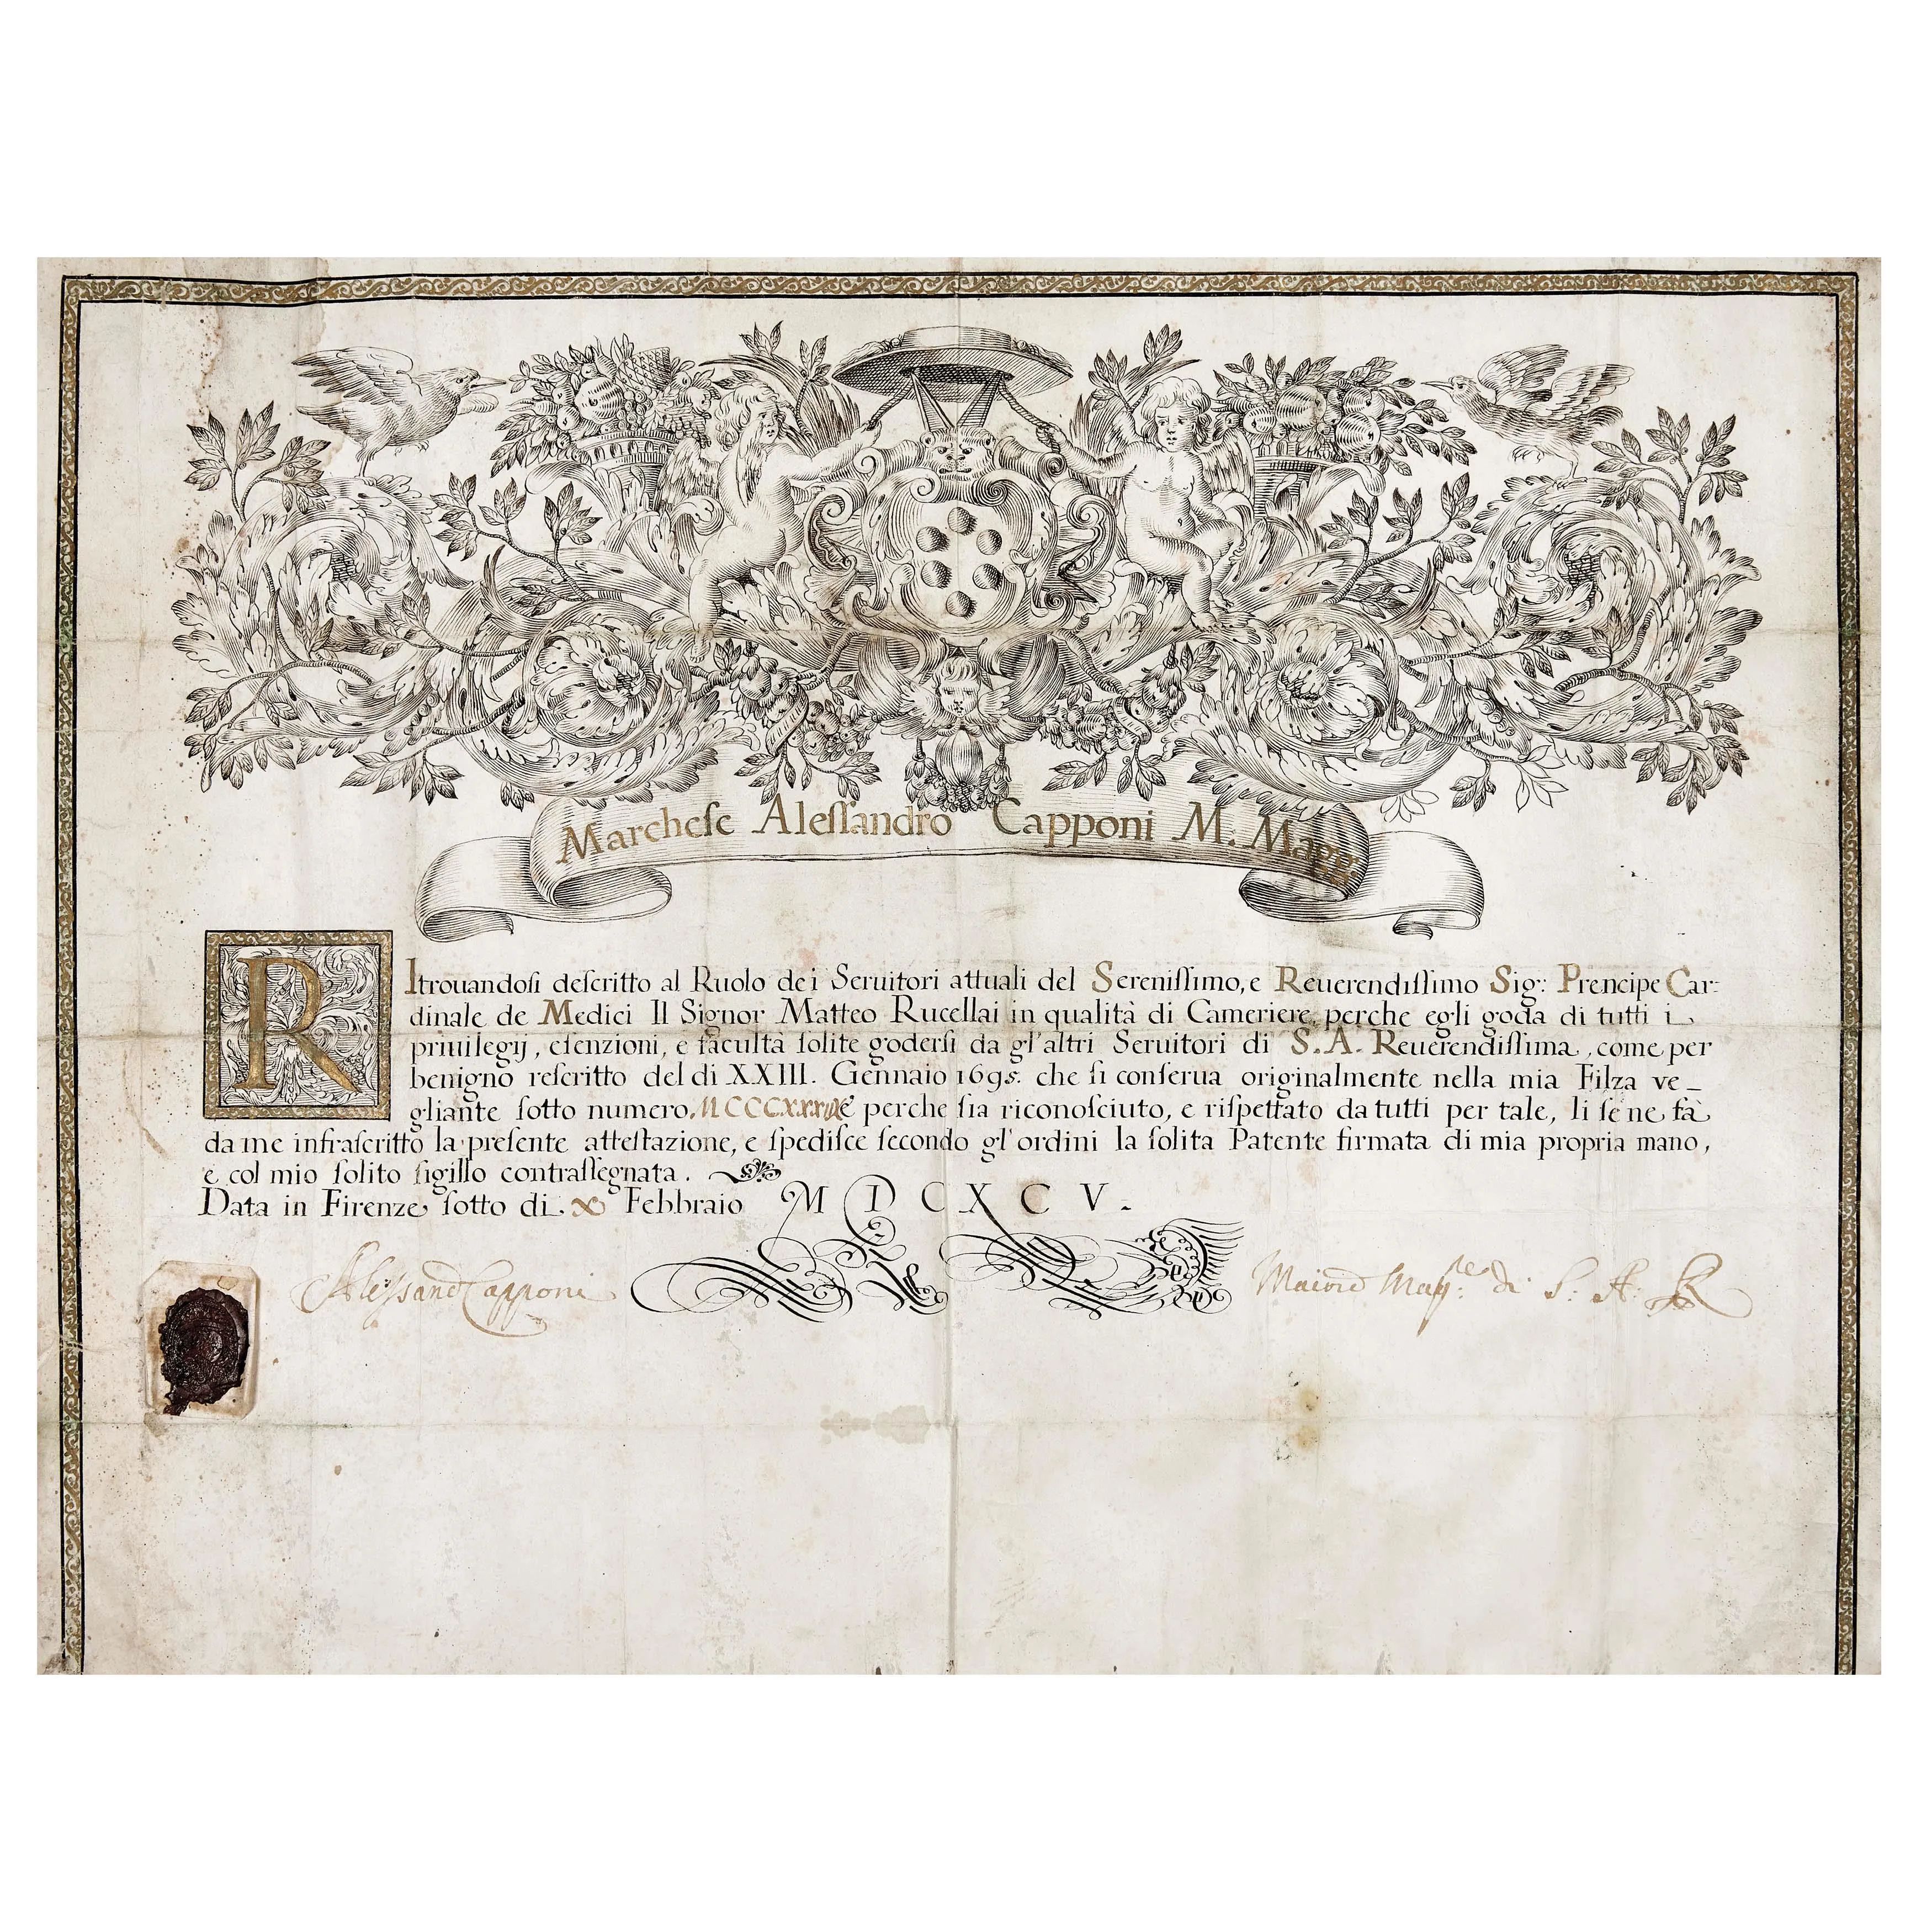 Marchese Alessandro Capponi M. Magg:
RItrouandosi descritto al Ruolo dei Seruitori attuali del Serenissimo, e Reuerendissimo Sig: Prencipe Car=
dinale de Medici Il Signor Matteo Rucellai in qualità di Cameriere, perche egli goda di tutti i
priuilegij, esenzioni, e facultà solite godersi da gl'altri Seruitori di S. A. Reuerendissima, come per
benigno rescritto del di XXIII. Gennaio 1695. che si conserua originalmente nella mia Filza ve_
gliante sotto numero, e perche sia riconosciuto, e rispettato da tutti per tale, li se ne fà
da me infrascritto la presente attestazione, e spedisce secondo gl'ordini la solita Patente firmata di mia propria mano,
e col mio solito sigillo contrassegnata.
Data in Firenze sotto di Febbraio MDCXCV.
Alessand Capponi Maiord Mag: di S: A: R